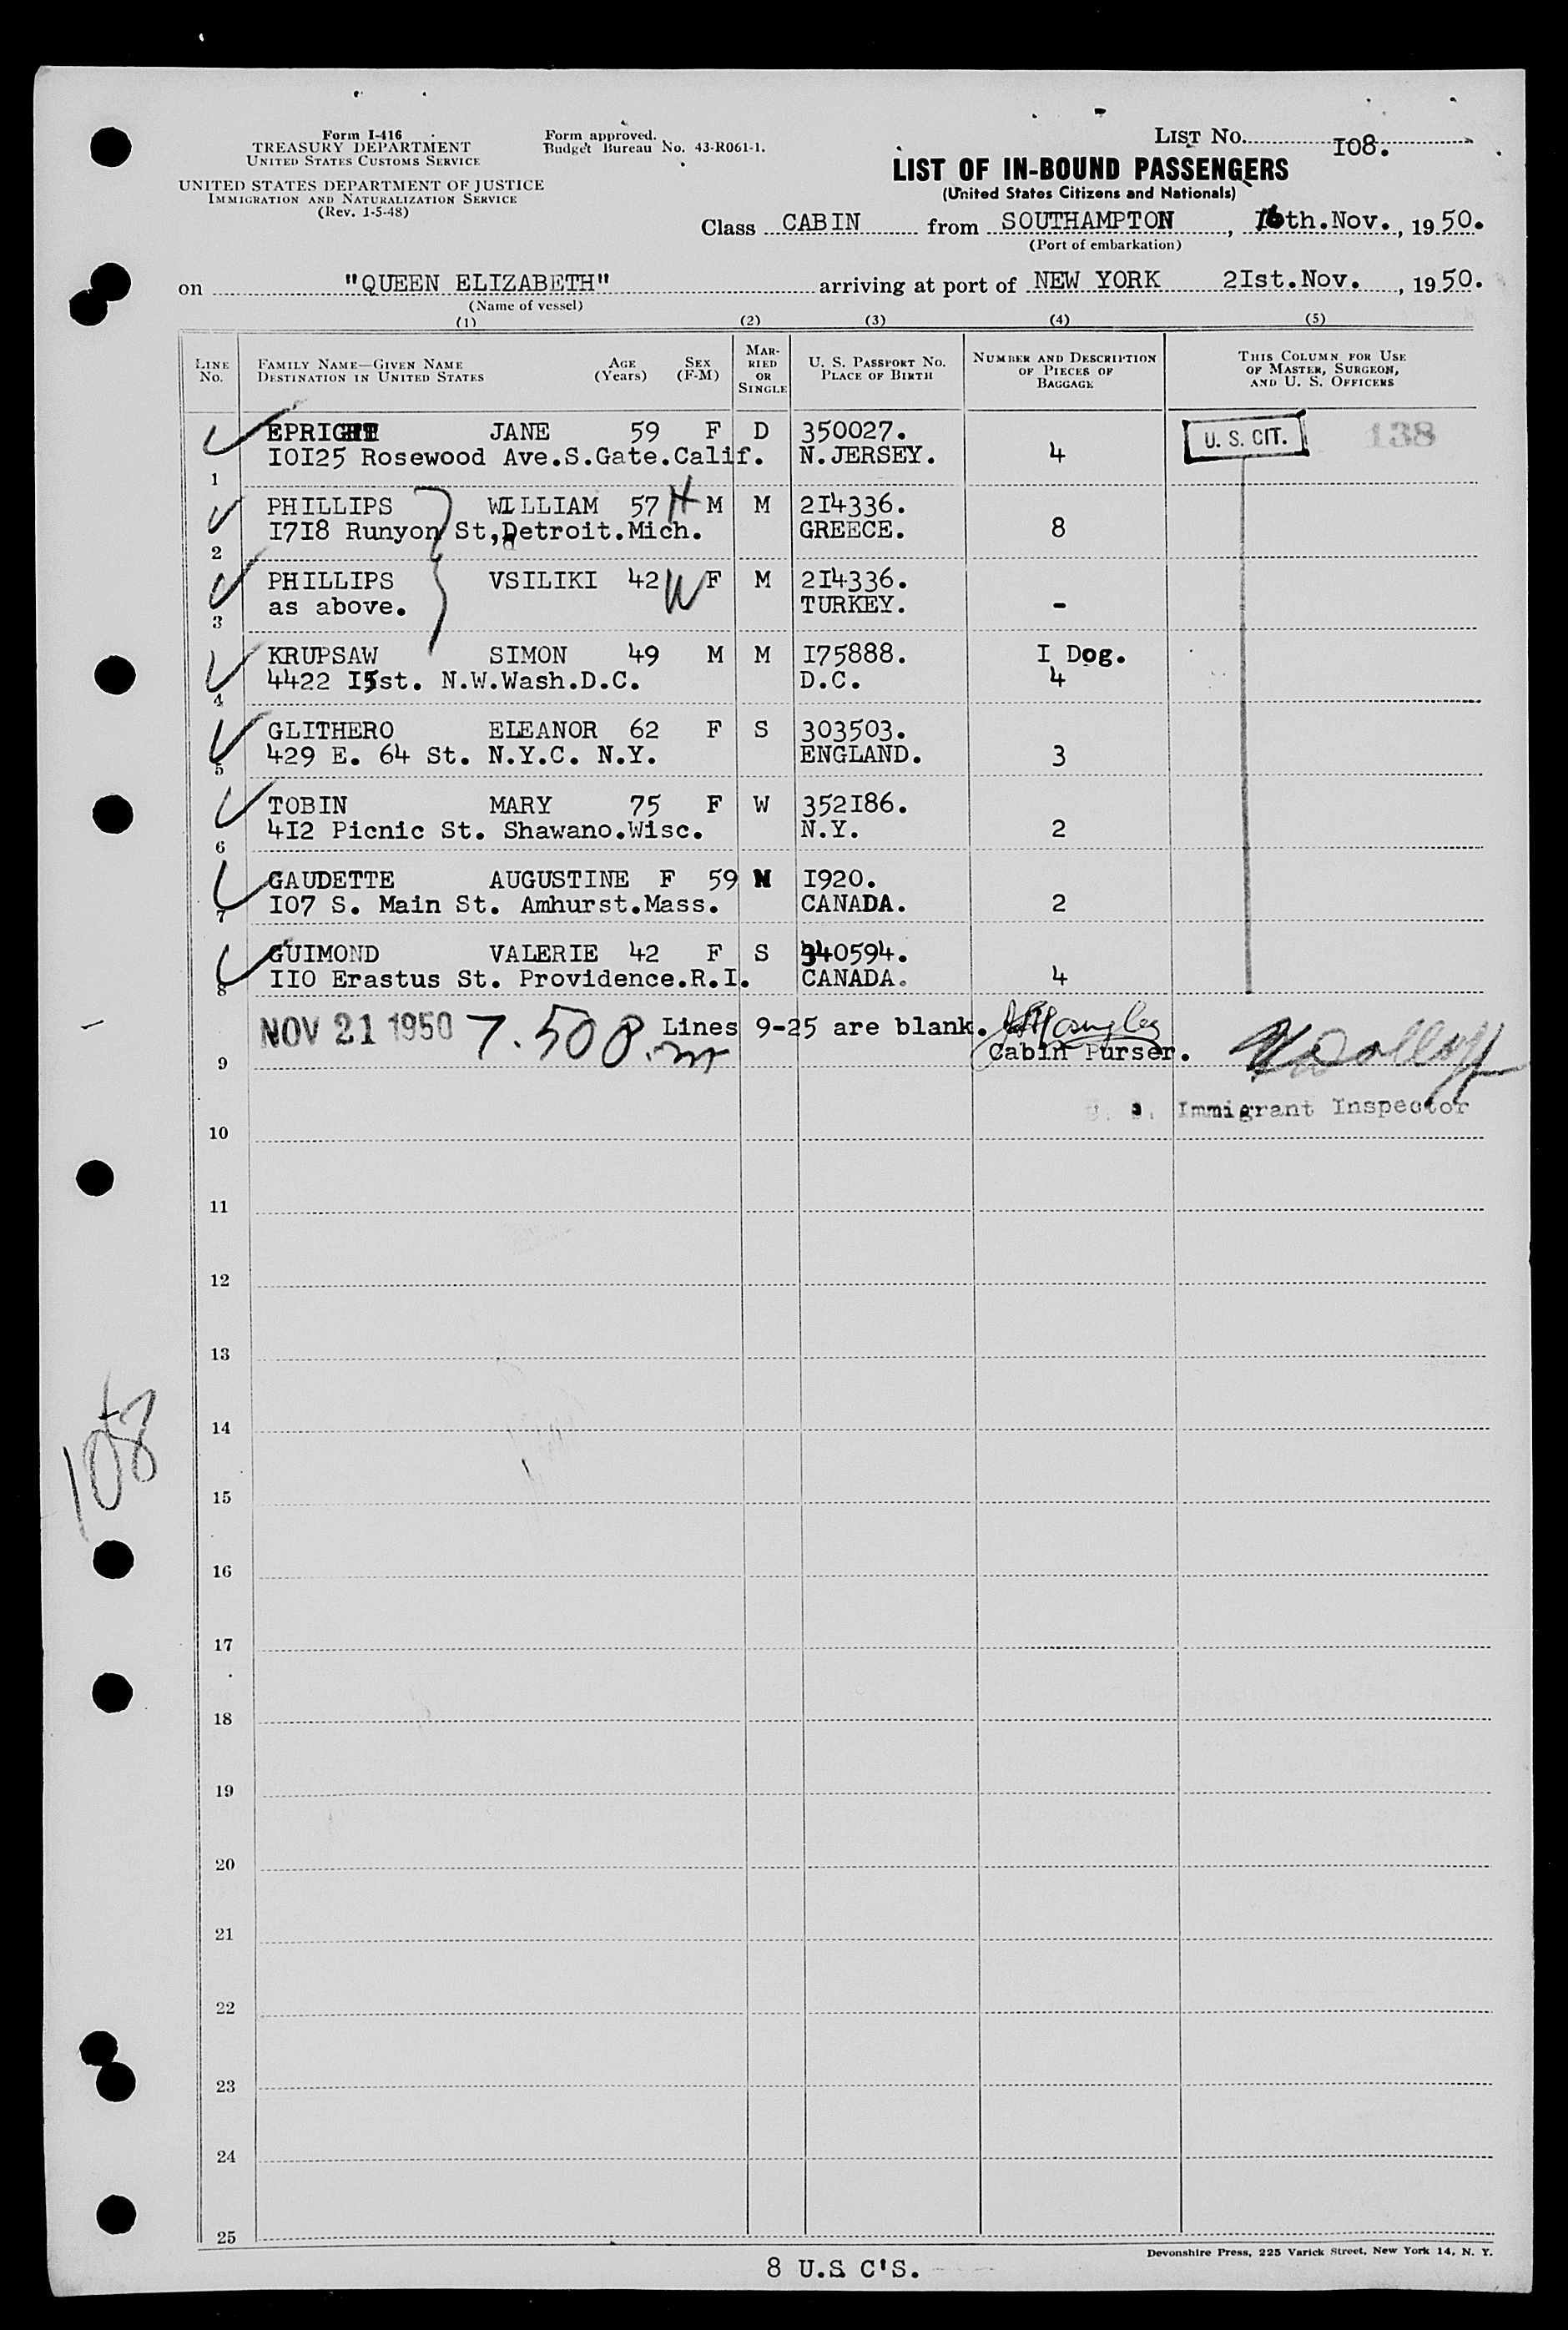 Form I-416
TREASURY DEPARTMENT
UNITED STATES CUSTOMS SERVICE
UNITED STATES DEPARTMENT OF JUSTICE
IMMIGRATION AND NATURALIZATION SERVICE
(Rev. 1-5-48)
Form approved.
Budget Bureau No. 43-R061-1.
LIST No. I08.
LIST OF IN-BOUND PASSENGERS
(United States Citizens and Nationals)
Class CABIN from SOUTHAMPTON, 16th.Nov., 1950.
(Port of embarkation)
on "QUEEN ELIZABETH" arriving at port of NEW YORK 2Ist.Nov., 1950.
(Name of vessel)
(1) (2) (3) (4) (5)
LINE No. FAMILY NAME—GIVEN NAME DESTINATION IN UNITED STATES AGE (Years) SEX (F-M) MARRIED OR SINGLE U. S. PASSPORT NO. PLACE OF BIRTH NUMBER AND DESCRIPTION OF PIECES OF BAGGAGE THIS COLUMN FOR USE OF MASTER, SURGEON, AND U. S. OFFICERS
EPRIGHT JANE 59 F D 350027. U. S. CIT. 138
1 I0I25 Rosewood Ave.S.Gate.Calif. N.JERSEY. 4
PHILLIPS WILLIAM 57 H M M 2I4336.
2 I7I8 Runyon St,Detroit.Mich. GREECE. 8
PHILLIPS VSILIKI 42 W F M 2I4336.
3 as above. TURKEY. -
KRUPSAW SIMON 49 M M I75888. I Dog.
4 4422 I5st. N.W.Wash.D.C. D.C. 4
GLITHERO ELEANOR 62 F S 303503.
5 429 E. 64 St. N.Y.C. N.Y. ENGLAND. 3
TOBIN MARY 75 F W 352I86.
6 4I2 Picnic St. Shawano.Wisc. N.Y. 2
GAUDETTE AUGUSTINE F 59 M I920.
7 I07 S. Main St. Amhurst.Mass. CANADA. 2
GUIMOND VALERIE 42 F S 340594.
8 II0 Erastus St. Providence.R.I. CANADA. 4
NOV 21 1950 7.50 P.m Lines 9-25 are blank.
9 Cabin Purser.
Immigrant Inspector
10
11
12
13
14
108
15
16
17
18
19
20
21
22
23
24
25
Devonshire Press, 225 Varick Street, New York 14, N. Y.
8 U.S C'S.